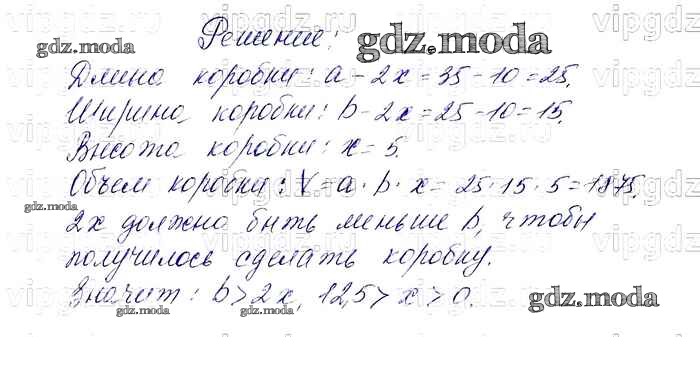 Решение:
gdz.moda
gdz.moda
Длина коробки: a - 2x = 35 - 10 = 25.
Ширина коробки: b - 2x = 25 - 10 = 15.
Высота коробки: x = 5.
Объем коробки: V = a · b · x = 25 · 15 · 5 = 1875.
gdz.moda
2x должно быть меньше b, чтобы
получилось сделать коробку.
Значит: b > 2x, 12,5 > x > 0.
gdz.moda
gdz.moda
gdz.moda